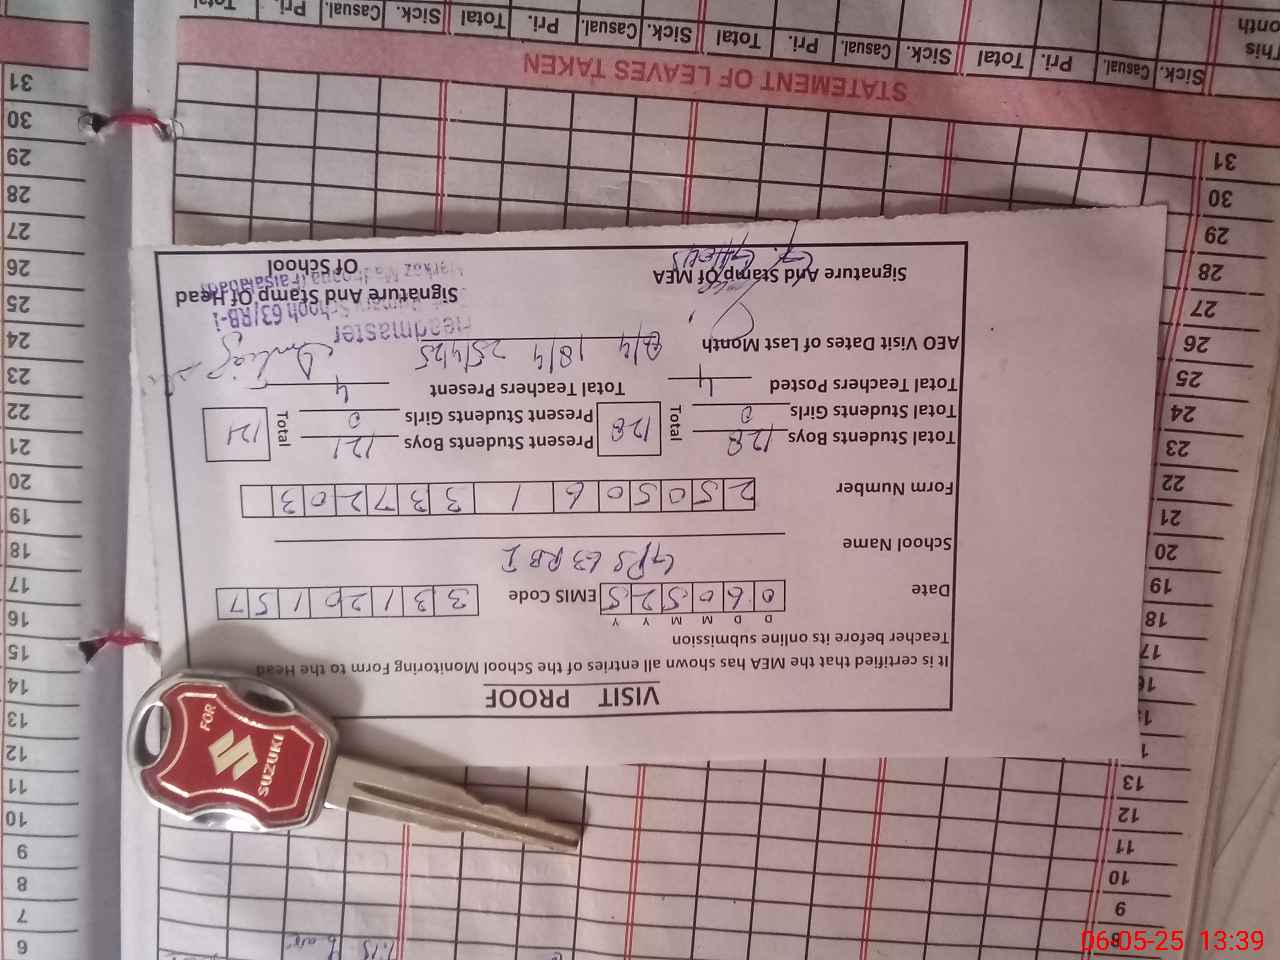 VISIT PROOF
It is certified that the MEA has shown all entries of the School Monitoring Form to the Head
Teacher before its online submission
D D M M Y Y
Date 0 6 0 5 2 5 EMIS Code 3 3 1 2 0 1 5 7
School Name GPS 63 RB I
Form Number 2 5 0 5 0 6 1 3 3 7 2 0 3
Total Students Boys 128 Total 128 Present Students Boys 121 Total 121
Total Students Girls 0 Present Students Girls 0
Total Teachers Posted 4 Total Teachers Present 4
AEO Visit Dates of Last Month 18/4 25/4/25
Headmaster
63/RB-I
Signature And Stamp Of MEA
Signature And Stamp Of Head
Of School
Markaz
(Faisalabad)
STATEMENT OF LEAVES TAKEN
This
Month
Sick. Casual. Pri. Total Sick. Casual. Pri. Total Sick. Casual. Pri. Total Sick. Casual. Pri. Total
6
7
8
9
10
11
12
13
14
15
16
17
18
19
20
21
22
23
24
25
26
27
28
29
30
31
8
9
10
11
12
13
1
16
17
18
19
20
21
22
23
24
25
26
27
28
29
30
31
FOR
SUZUKI
06-05-25 13:39